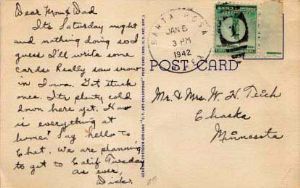 Dear Mom & Dad
Its Saturday night
and nothing doing so I
guess I'll write some
cards. Really saw snow
in Iowa. Got stuck
once. Its plenty cold
down here yet. How
is everything at
home? Say hello to
Chet. We are planning
to get to Calif Tuesday
as ever,
Dick.
SANTA ROSA
JAN 5
3 PM
1942
1
POST CARD
Mr. & Mrs. W. H. Teich
Chaska
Minnesota